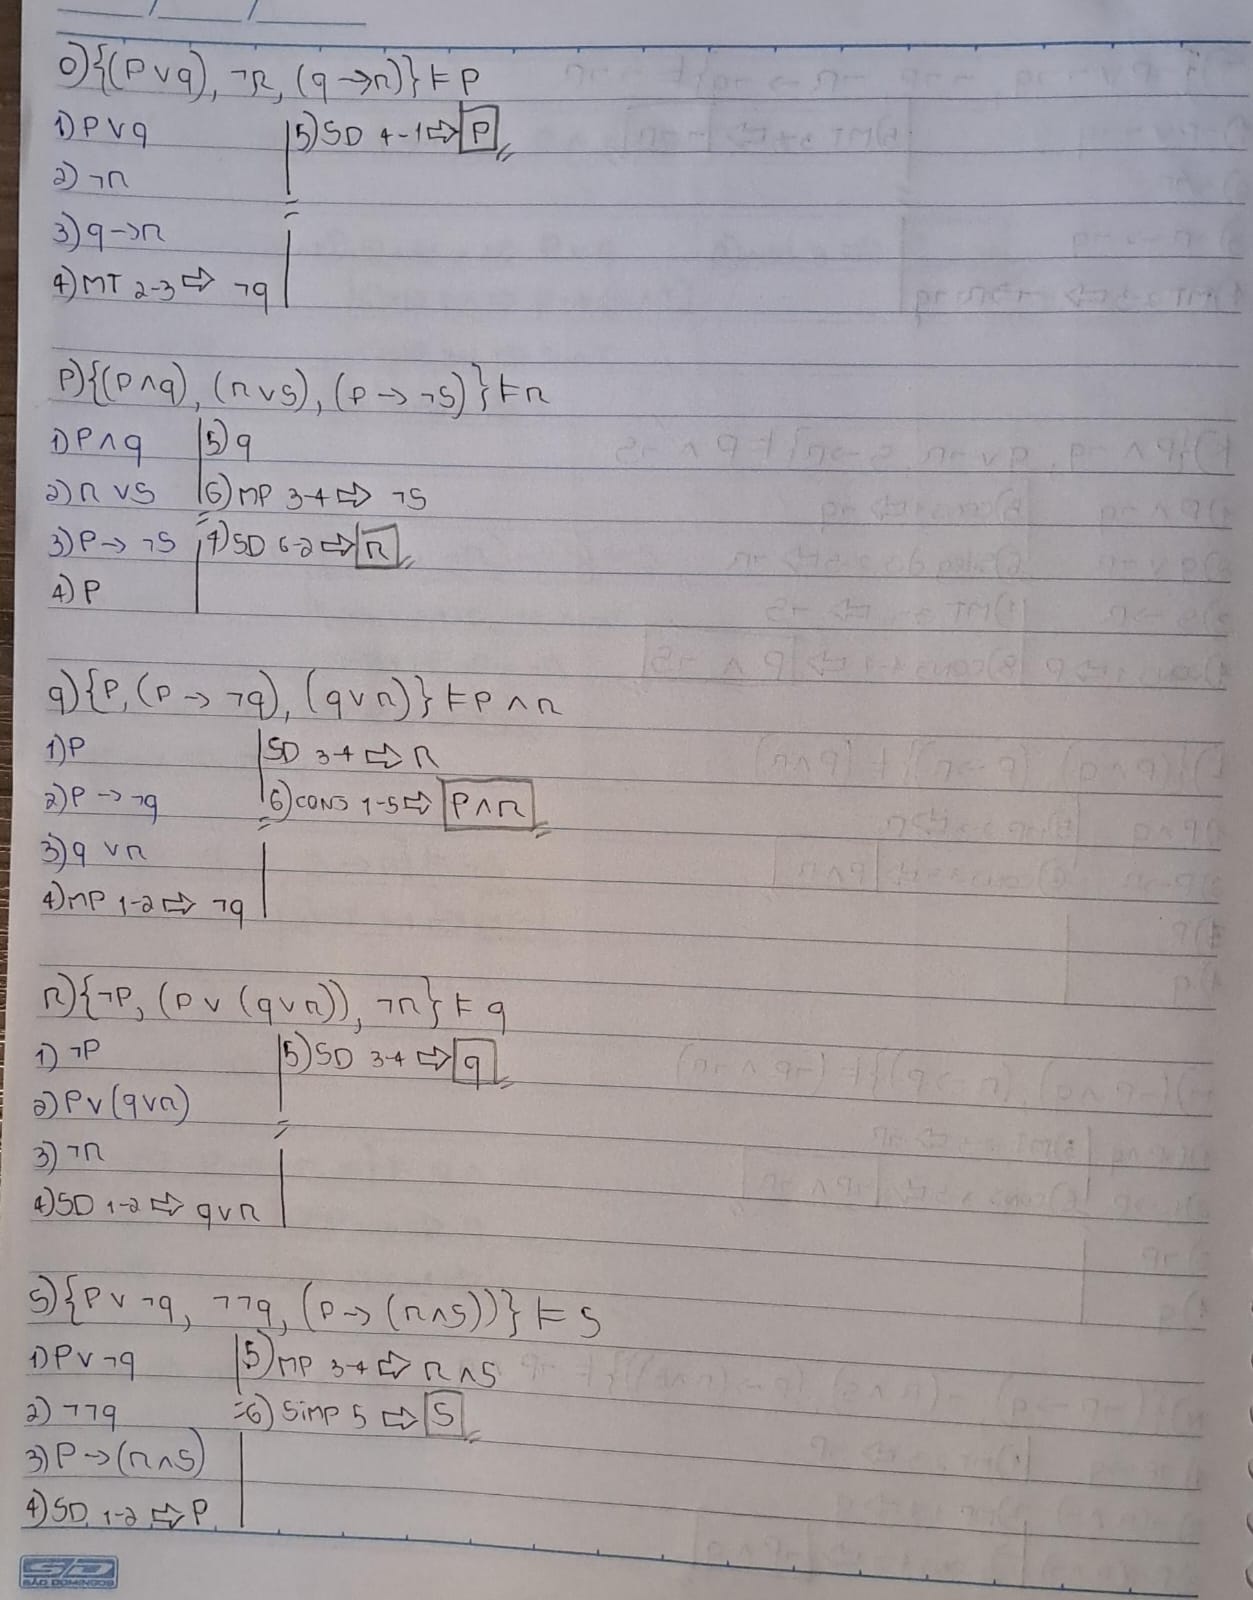 o) {(p ∨ q), ¬r, (q → r)} ⊨ p
1) p ∨ q
2) ¬r
3) q → r
4) MT 2-3 ⇨ ¬q
5) SD 4-1 ⇨ p
p) {(p ∧ q), (r ∨ s), (p → ¬s)} ⊨ r
1) p ∧ q
2) r ∨ s
3) p → ¬s
4) p
5) q
6) MP 3-4 ⇨ ¬s
7) SD 6-2 ⇨ r
q) {p, (p → ¬q), (q ∨ r)} ⊨ p ∧ r
1) p
2) p → ¬q
3) q ∨ r
4) MP 1-2 ⇨ ¬q
SD 3-4 ⇨ r
6) CONS 1-5 ⇨ p ∧ r
r) {¬p, (p ∨ (q ∨ r)), ¬r} ⊨ q
1) ¬p
2) p ∨ (q ∨ r)
3) ¬r
4) SD 1-2 ⇨ q ∨ r
5) SD 3-4 ⇨ q
s) {p ∨ ¬q, ¬¬q, (p → (r ∧ s))} ⊨ s
1) p ∨ ¬q
2) ¬¬q
3) p → (r ∧ s)
4) SD 1-2 ⇨ p
5) MP 3-4 ⇨ r ∧ s
6) SIMP 5 ⇨ s
SD
SÃO DOMINGOS